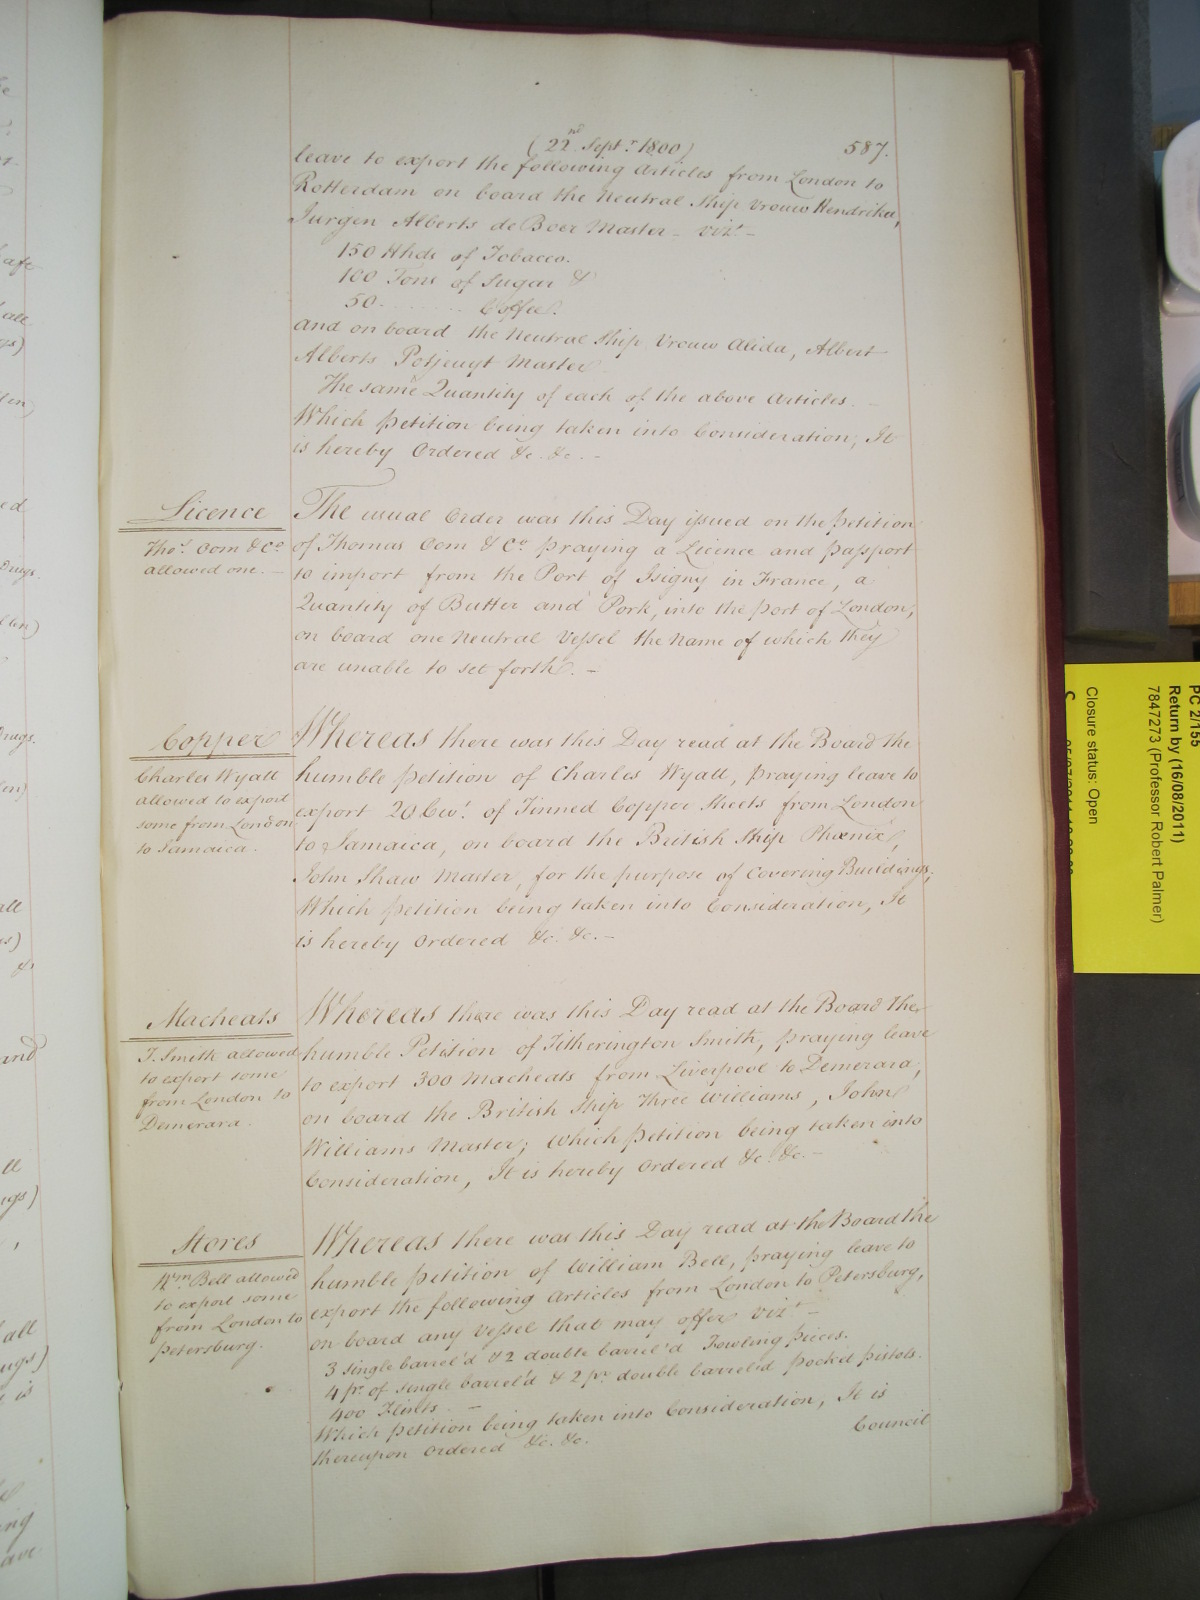 (22nd Septr. 1800) 587.
leave to export the following Articles from London to
Rotterdam on board the Neutral Ship Vrouw Hendrika,
Jurgen Alberts de Boer Master – vizt. –
150 Hhds of Tobacco.
100 Tons of Sugar &
50 . . . . . . Coffee.
and on board the Neutral Ship Vrouw Alida, Albert
Alberts Potjeuyt Master
The same Quantity of each of the above Articles. –
Which Petition being taken into Consideration, It
is hereby Ordered &c. &c. –
Licence
Thos. Oom & Co.
allowed one. –
The usual Order was this Day issued on the Petition
of Thomas Oom & Co. praying a Licence and passport
to import from the Port of Isigny in France, a
Quantity of Butter and Pork, into the port of London,
on board one Neutral Vessel the Name of which they
are unable to set forth. –
Copper
Charles Wyatt
allowed to export
some from London
to Jamaica.
Whereas there was this Day read at the Board the
humble petition of Charles Wyatt, praying leave to
export 20 Cwt. of Tinned Copper Sheets from London
to Jamaica, on board the British Ship Phœnix,
John Shaw Master, for the purpose of Covering Buildings;
Which Petition being taken into Consideration, It
is hereby Ordered &c. &c. –
Macheats
T. Smith allowed
to export some
from London to
Demerara.
Whereas there was this Day read at the Board the
humble Petition of Titherington Smith, praying leave
to export 300 Macheats from Liverpool to Demerara,
on board the British Ship Three Williams, John
Williams Master; Which Petition being taken into
Consideration, It is hereby Ordered &c. &c. –
Stores
Wm. Bell allowed
to export some
from London to
Petersburg.
Whereas there was this Day read at the Board the
humble petition of William Bell, praying leave to
export the following Articles from London to Petersburg,
on board any Vessel that may offer vizt. –
3 single barrel'd & 2 double barrel'd Fowling pieces.
4 pr. of single barrel'd & 2 pr. double barrel'd pocket pistols.
400 Flints. –
Which Petition being taken into Consideration, It is
thereupon Ordered &c. &c.
Council
PC 2/155
Return by (16/08/2011)
7847273 (Professor Robert Palmer)
Closure status: Open